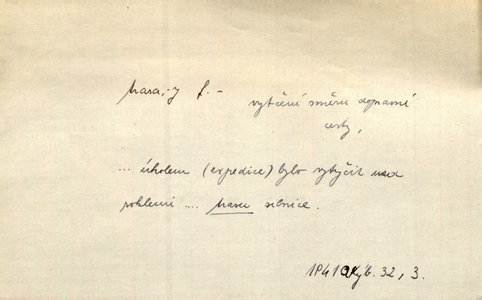 trasa, -y f. -
vytčení směru dopravní
cesty,
... úkolem (expedice) bylo vytyčit nad
pohlemi ... trasu silnice.
32, 3.